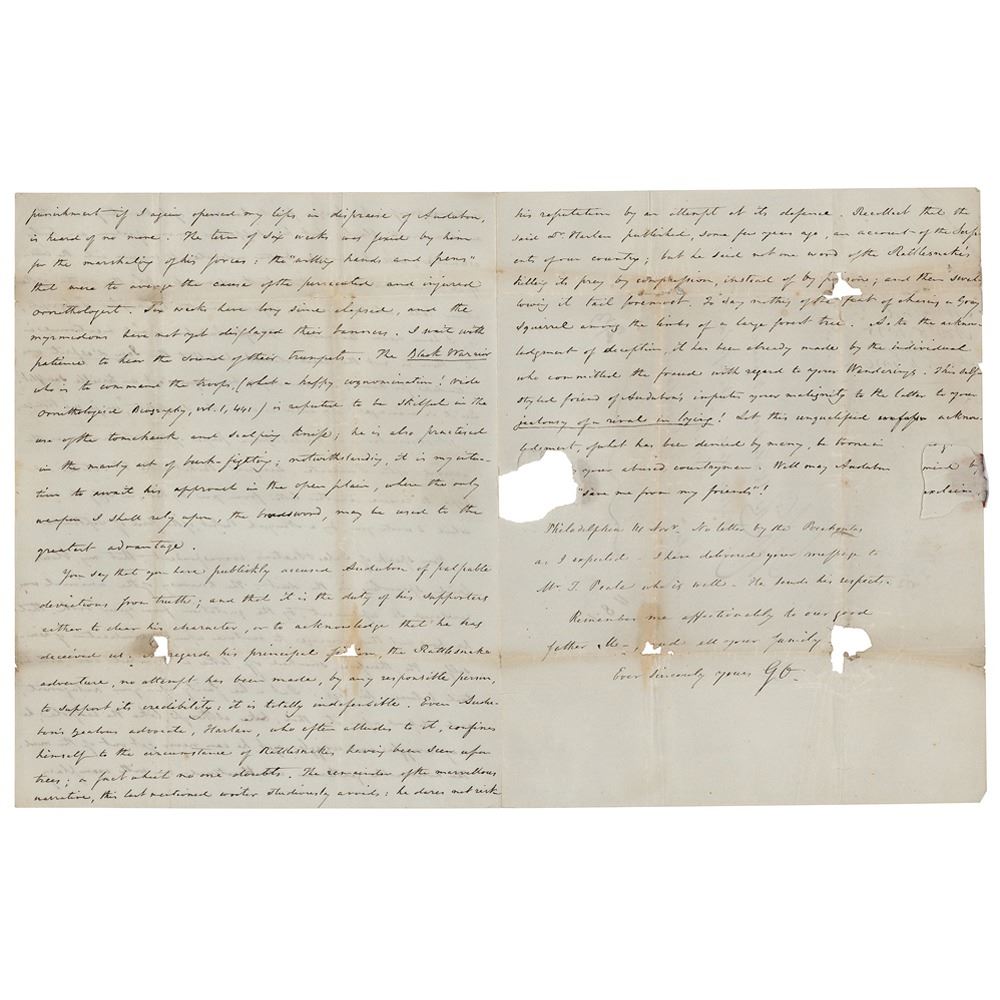 punishment if I again opened my lips in dispraise of Audubon,
is heard of no more. The term of six weeks was fixed by him
for the marshaling of his forces: the "willing hands and pens"
that were to avenge the cause of the persecuted and injured
ornithologist. Six weeks have long since elapsed, and the
myrmidons have not yet displayed their banners. I wait with
patience to hear the sound of their trumpets. The Black Warrior
who is to command the troops, (what a happy cognomination! vide
Ornithological Biography, vol. 1, 441) is reputed to be skilful in the
use of the tomahawk and scalping knife; he is also practised
in the manly art of bush-fighting; notwithstanding, it is my inten-
tion to await his approach in the open plain, where the only
weapon I shall rely upon, the broadsword, may be used to the
greatest advantage.
You say that you have publickly accused Audubon of palpable
deviations from truth; and that it is the duty of his supporters
either to clear his character, or to acknowledge that he has
deceived us. As regards his principal, the Rattlesnake
adventure, no attempt has been made, by any responsible person,
to support its credibility: it is totally indefensible. Even Audu-
bon's zealous advocate, Harlan, who often alludes to it, confines
himself to the circumstance of Rattlesnakes having been seen upon
trees; a fact which no one doubts. The remainder of the marvellous
narrative, this last mentioned writer studiously avoids: he dares not risk
his reputation by an attempt at its defence. Recollect that the
said Dr. Harlan published, some few years ago, an account of the Serp-
ents of our country; but he said not one word of the Rattlesnake's
killing its prey by compression, instead of by; and then swal-
lowing it tail foremost. To say nothing of the feat of chasing a Gray
Squirrel among the limbs of a large forest tree. As to the acknow-
ledgment of deception, it has been already made by the individual
who committed the fraud with regard to your Wanderings. This self
styled friend of Audubon's imputes your malignity to the latter to your
jealousy of a rival in lying! Let this unqualified acknow-
ledgment, of what has been denied by many, be borne in mind by
your abused countryman. Well may Audubon exclaim,
"Save me from my friends"!
Philadelphia 14 Novr. No letter by the Pocahontas
as I expected - I have delivered your message to
Mr. T. Peale who is well - He sends his respects.
Remember me affectionately to our good
father Mc-, and all your family
Ever sincerely yours GO-